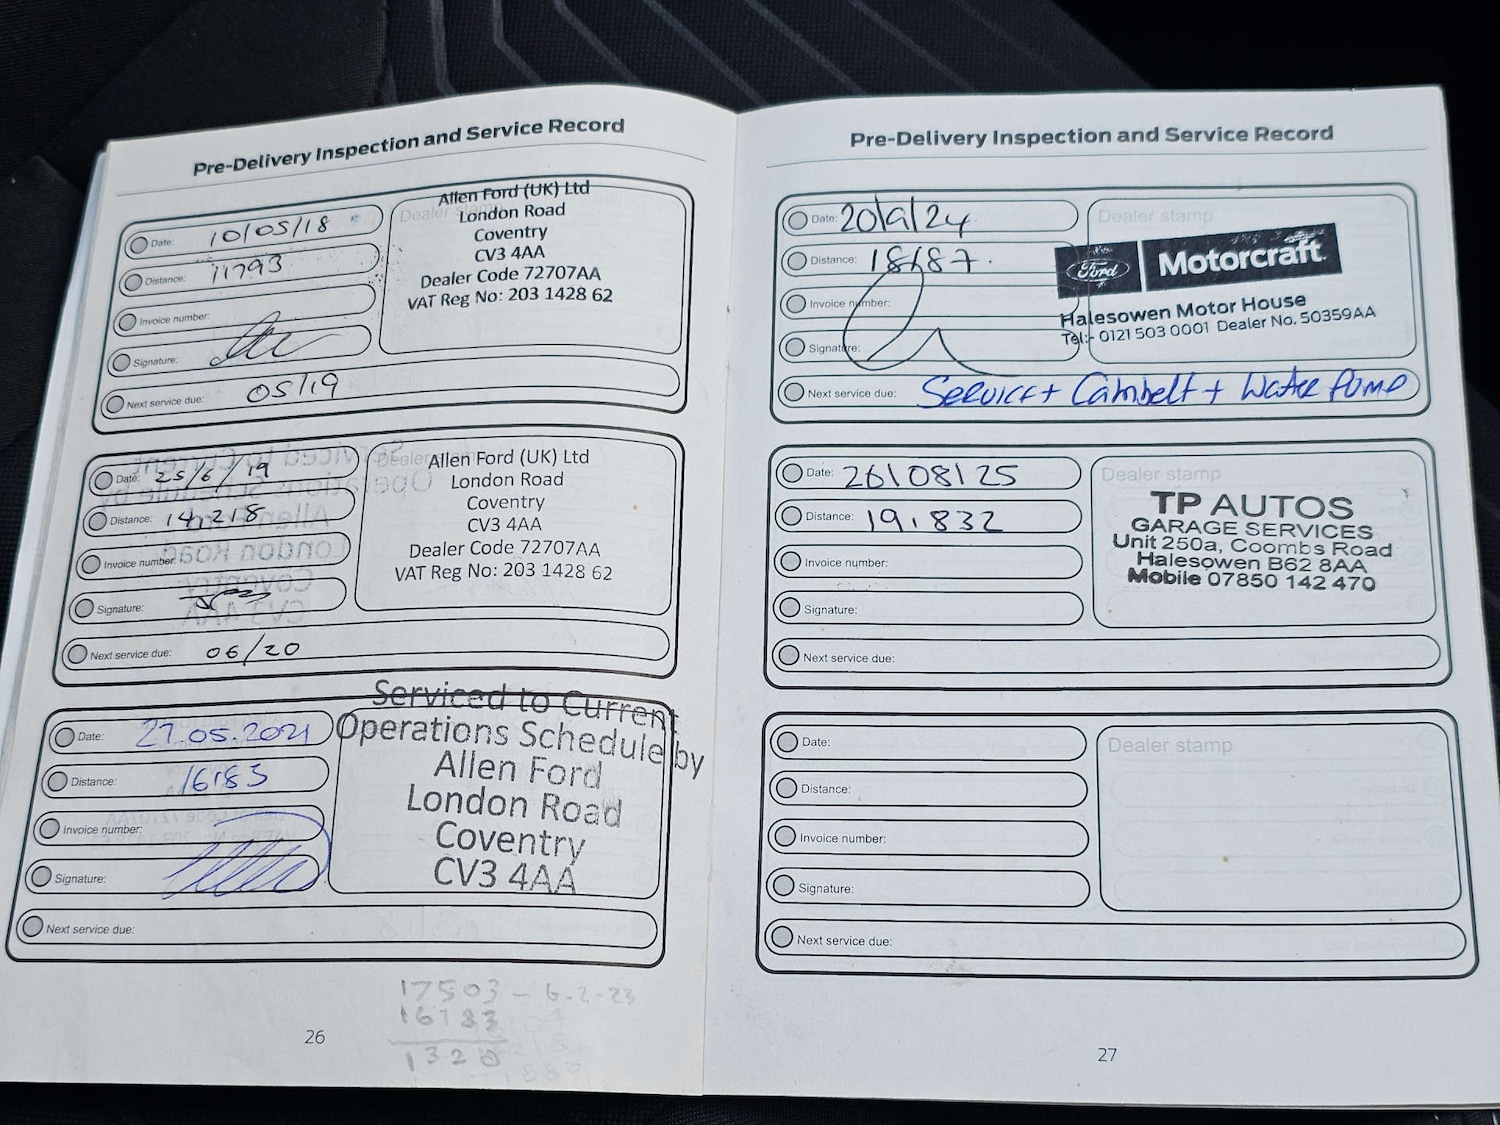 Pre-Delivery Inspection and Service Record
Date: 10/05/18
Distance: 11793
Invoice number:
Signature:
Next service due: 05/19
Dealer stamp
Allen Ford (UK) Ltd
London Road
Coventry
CV3 4AA
Dealer Code 72707AA
VAT Reg No: 203 1428 62
Date: 25/6/19
Distance: 14,218
Invoice number:
Signature:
Next service due: 06/20
Allen Ford (UK) Ltd
London Road
Coventry
CV3 4AA
Dealer Code 72707AA
VAT Reg No: 203 1428 62
Date: 27.05.2021
Distance: 16183
Invoice number:
Signature:
Next service due:
Serviced to Current
Operations Schedule by
Allen Ford
London Road
Coventry
CV3 4AA
17503 - 6-2-23
16183
1320
26
Pre-Delivery Inspection and Service Record
Date: 20/9/24
Distance: 18687.
Invoice number:
Signature:
Next service due: Service + Cambelt + Water Pump
Dealer stamp
Ford Motorcraft
Halesowen Motor House
Tel:- 0121 503 0001 Dealer No. 50359AA
Date: 26/08/25
Distance: 19,832
Invoice number:
Signature:
Next service due:
Dealer stamp
TP AUTOS
GARAGE SERVICES
Unit 250a, Coombs Road
Halesowen B62 8AA
Mobile 07850 142 470
Date:
Distance:
Invoice number:
Signature:
Next service due:
Dealer stamp
27